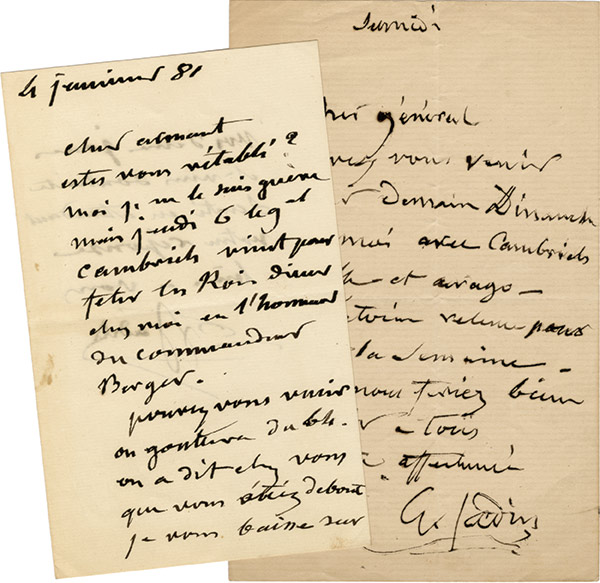 4 janvier 81
cher armant
estes vous rétabli ?
moi je ne le suis guère
mais jeudi 6 le gal
Cambriels vient pour
feter les Rois diner
chez moi en l'honneur
du commandeur
Berger.
pouvez vous venir
on goutera du
on a dit chez vous
que vous étiez debout
je vous laisse sur
Samedi
général
vous venir
demain Dimanche
moi avec Cambriels
et arago –
retenu pour
la Semaine –
nous feriez bien
à tous
affectionné
G. Jadin